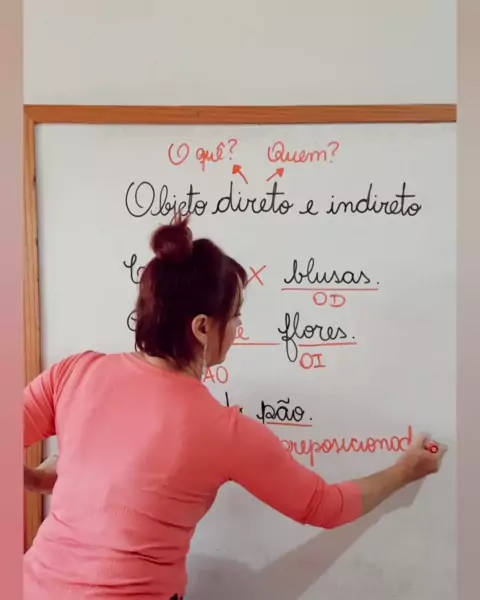 O quê? Quem?
Objeto direto e indireto
X blusas.
OD
flores.
OI
pão.
preposicionad